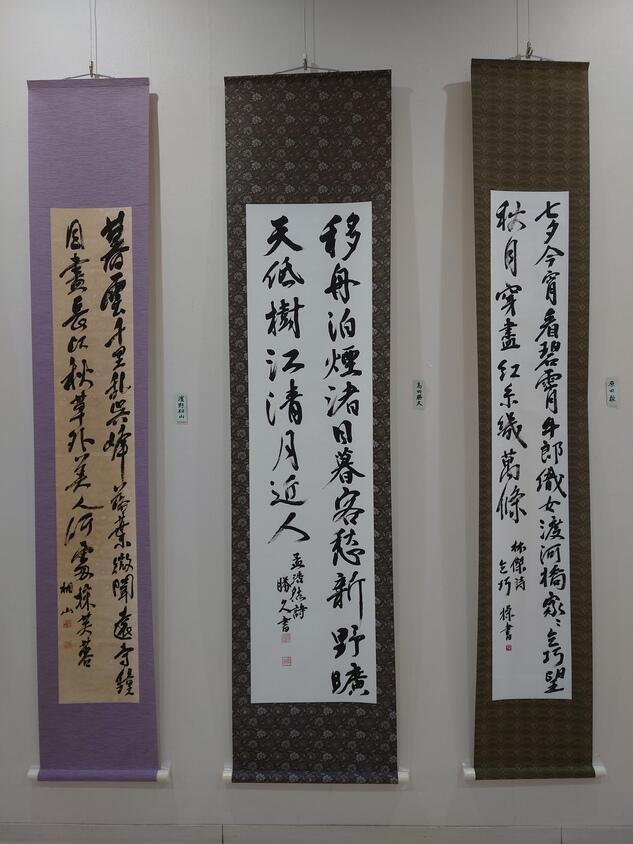 七夕今宵看碧霄牛郎織女渡河橋家々乞巧望
秋月穿盡紅糸幾萬條
林傑詩
乞巧 書
移舟泊煙渚日暮客愁新野曠
天低樹江清月近人
孟浩然詩
勝久書
高田勝久
暮雲千里乱呉峰落葉微聞遠寺鐘
目盡長江秋草外美人何處採芙蓉
桐山
濱野桐山
原田